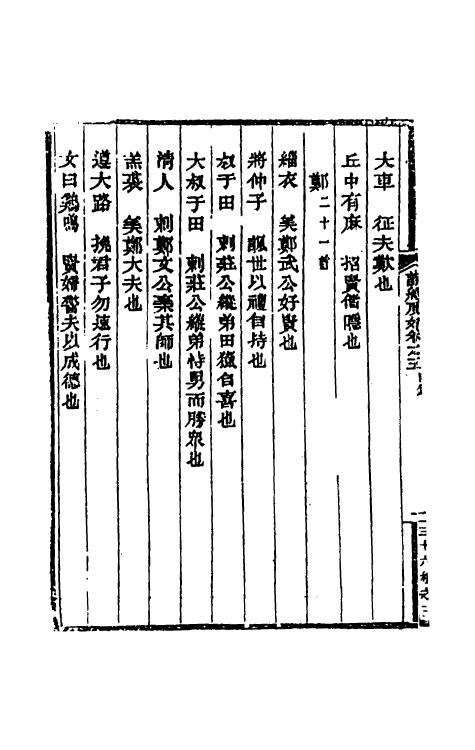 大車　征夫歎也
丘中有麻　招賢偕隱也
鄭二十一首
緇衣　美鄭武公好賢也
將仲子　諷世以禮自持也
叔于田　刺莊公縱弟田獵自喜也
大叔于田　刺莊公縱弟恃勇而勝衆也
清人　刺鄭文公棄其師也
羔裘　美鄭大夫也
遵大路　挽君子勿速行也
女曰雞鳴　賢婦警夫以成德也
詩經原始卷之五